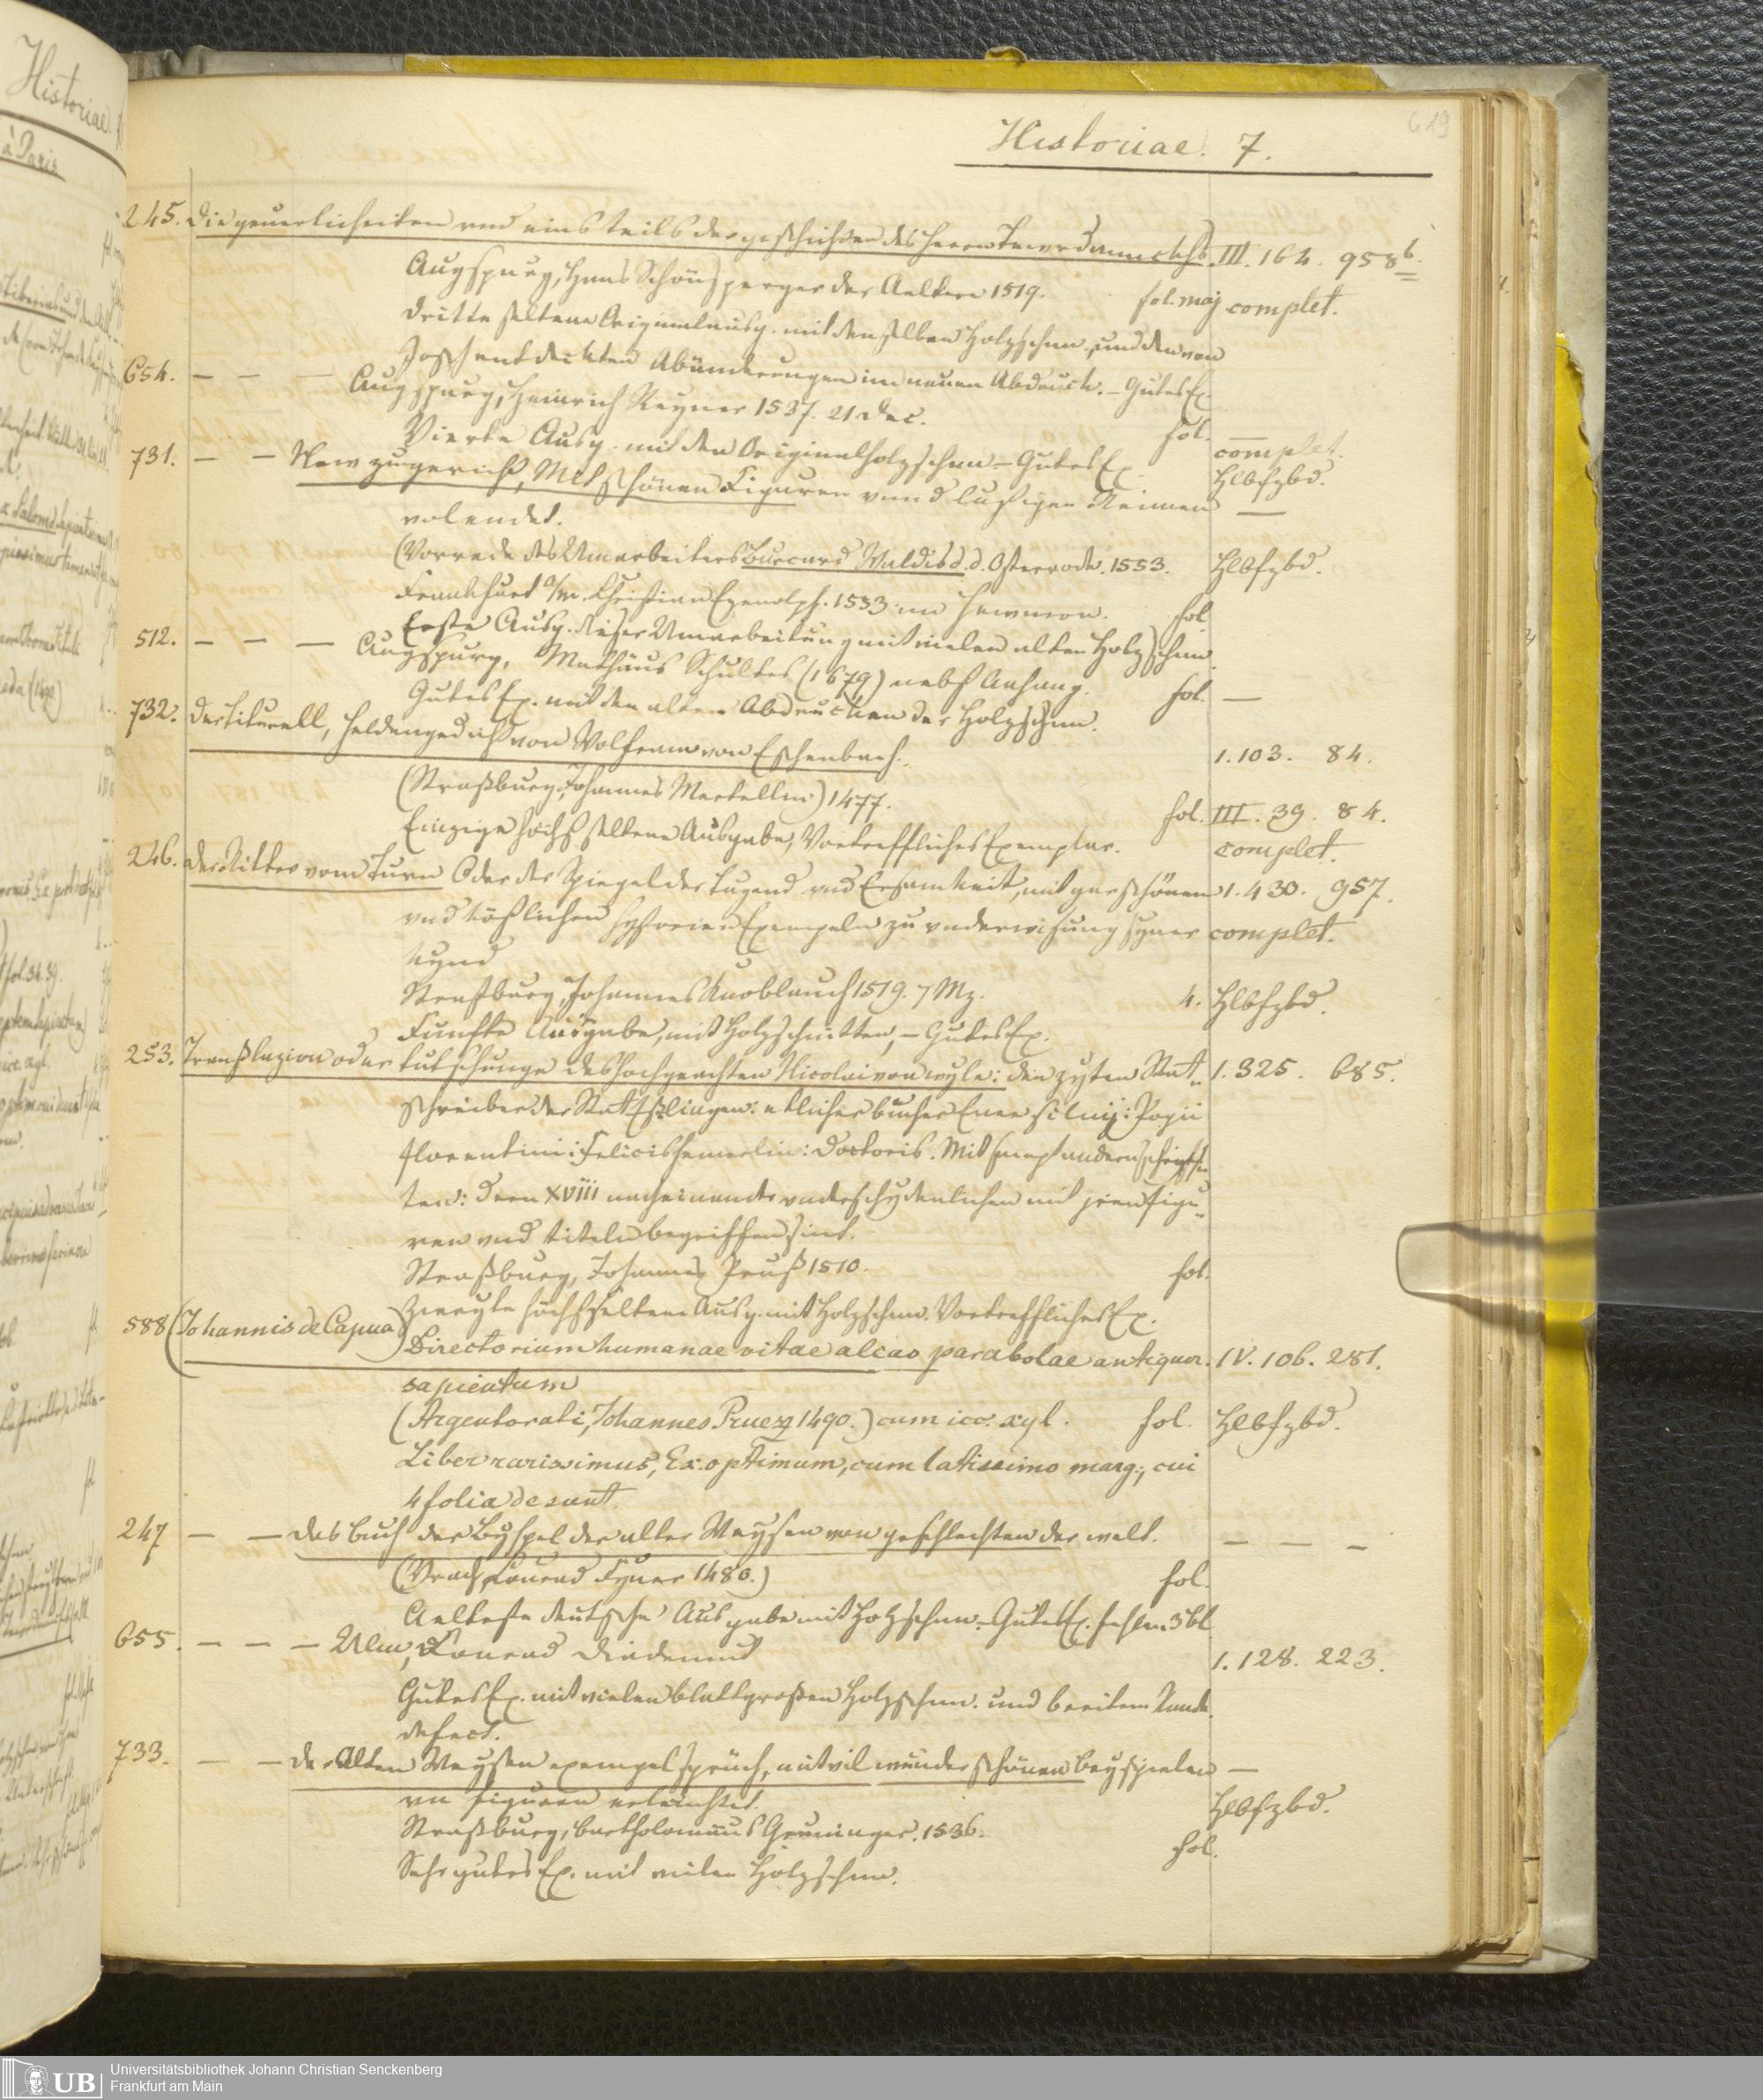 Historiae. 7.
619
245. Die geuerlicheiten vnd eins teils der geschichten des Herren Tewrdannckhs. III. 164. 958b.
Augspurg, Hans Schönsperger der Aeltere 1519. fol. maj complet.
Dritte seltene Originalausg. mit denselben Holzschnn. und den von
entdeckten Abänderungen im neuen Abdruck. – Gutes Ex.
654. — — — Augspurg, Heinrich Steyner 1537. 21 Dec. fol. —
Vierte Ausg. mit den Originalholzschnn – Gutes Ex. complet.
731. — — New zugericht, Mit schönen Figuren vnnd lustigen Reimen Hlbfzbd.
volendet. —
(Vorrede des Umarbeiters Burcard Waldis d. d. Osterrode. 1553. Hlbfzbd.
Frankfurt a/m. Christian Egenolph. 1553 im Hewmon. fol.
Erste Ausg. dieser Umarbeitung mit vielen alten Holzschnn.
512. — — — Augspurg, Mathäus Schultes (1679) nebst Anhang. fol. —
Gutes Ex. mit den alten Abdrücken der Holzschnn.
732. Der Titurell, Heldengedicht von Wolfram von Eschenbach. 1. 103. 84.
(Straßburg, Johannes Mentellin) 1477. fol. III. 39. 84.
Einzige höchst seltene Ausgabe, Vortreffliches Exemplar. complet.
246. Der Ritter vom Turn Oder der Spiegel der Tugend vnd Ersamkeit, mit gar schönen 1. 430. 957.
vnd köstlichen hystorien Exempeln zu vnderwisung syner complet.
kynd
Straßburg, Johannes Knoblauch 1519. 7 Mz. 4. Hlbfzbd.
Funfte Ausgabe, mit Holzschnitten, – Gutes Ex.
253. Translazion oder tutschunge des hochgeachten Nicolai von wyle: den zyten Stat= 1. 325. 685.
schreiber der Stat Esslingen: etlicher bucher Enee silvij: Pogii
florentini: Felicis hemerlin: doctoris. Mit sampt andern schrifften
ten: dern XVIII nacheinander vnderschydenlichen mit jren figu=
ren vnd titeln begriffen sint.
Straßburg, Johannes Pruß 1510. fol.
Zweyte höchst seltene Ausg. mit Holzschnn. Vortreffliches Ex.
588 (Johannis de Capua) Directorium humanae vitae alias parabolae antiquor. IV. 106. 281.
sapientum
(Argentorati, Johannes Pruez 1490.) cum icc. xyl. fol. Hlbfzbd.
Liber rarissimus, Ex. optimum, cum latissimo marg., cui
4 folia desunt.
247 — — das buch der Byspel der alten Weysen von geschlechten der welt. — — —
(Urach, Conrad Fyner 1480.) fol.
Aelteste deutsche Ausgabe mit Holzschnn. – Gutes Ex. fehlen 3 bl.
655. — — — Ulm, Conrad Dinckmut 1. 128. 223.
Gutes Ex. mit vielen blattgroßen Holzschnn. und breitem Rande.
defect.
733. — — der Alten Weysen exempel sprüch, mit vil wunder schönen beyspielen —
vn figuren erleuchtet. Hlbfzbd.
Straßburg, Bartholomäus Grüninger. 1536. fol.
Sehr gutes Ex. mit vielen Holzschnn.
Historiae
à Paris
UB
Universitätsbibliothek Johann Christian Senckenberg
Frankfurt am Main